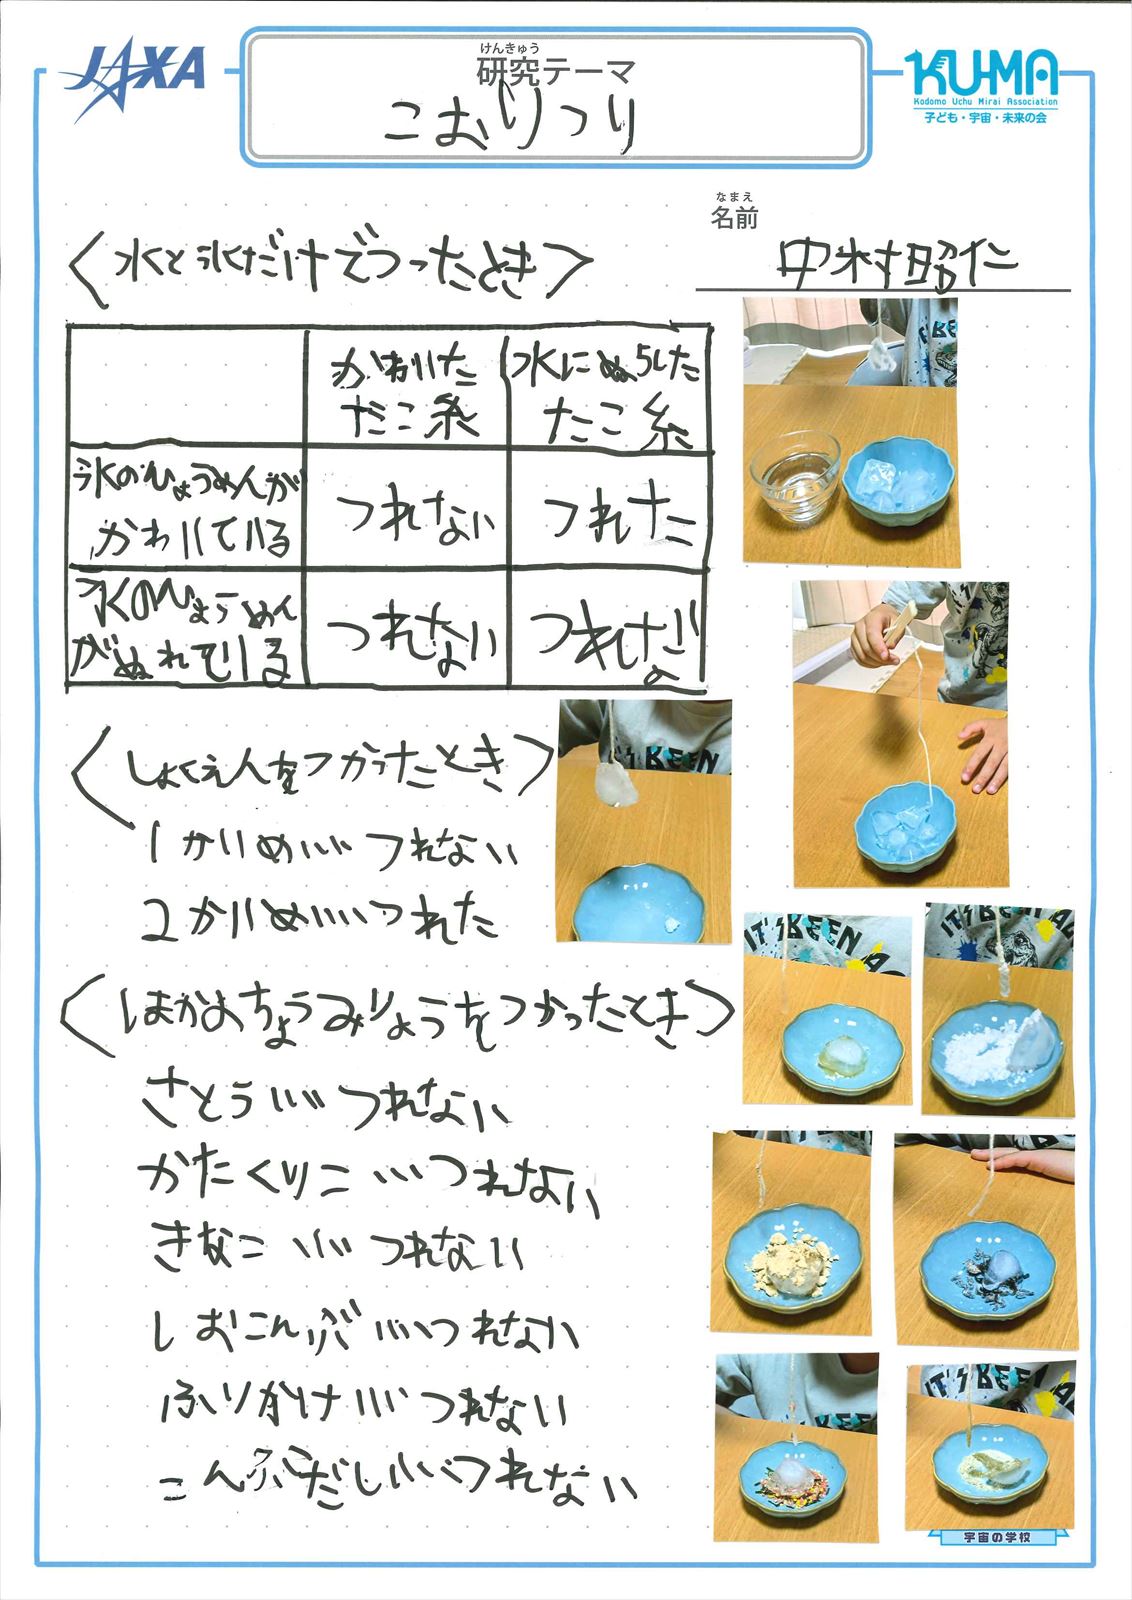 JAXA
けんきゅう
研究テーマ
こおりつり
KU-MA
Kodomo Uchu Mirai Association
子ども・宇宙・未来の会
なまえ
名前
中村昭仁
〈水と氷だけでつったとき〉
かわいた
たこ糸
水にぬらした
たこ糸
氷のひょうめんが
かわいている
つれない
つれた
氷のひょうめん
がぬれている
つれない
つれた
〈しょくえんをつかったとき〉
1かいめ……つれない
2かいめ……つれた
〈ほかのちょうみりょうをつかったとき〉
さとう……つれない
かたくりこ……つれない
きなこ……つれない
しおこんぶ……つれない
ふりかけ……つれない
こんぶだし……つれない
IT'S BEEN
IT'S BEEN
IT'S BEEN
IT'S BEEN
宇宙の学校